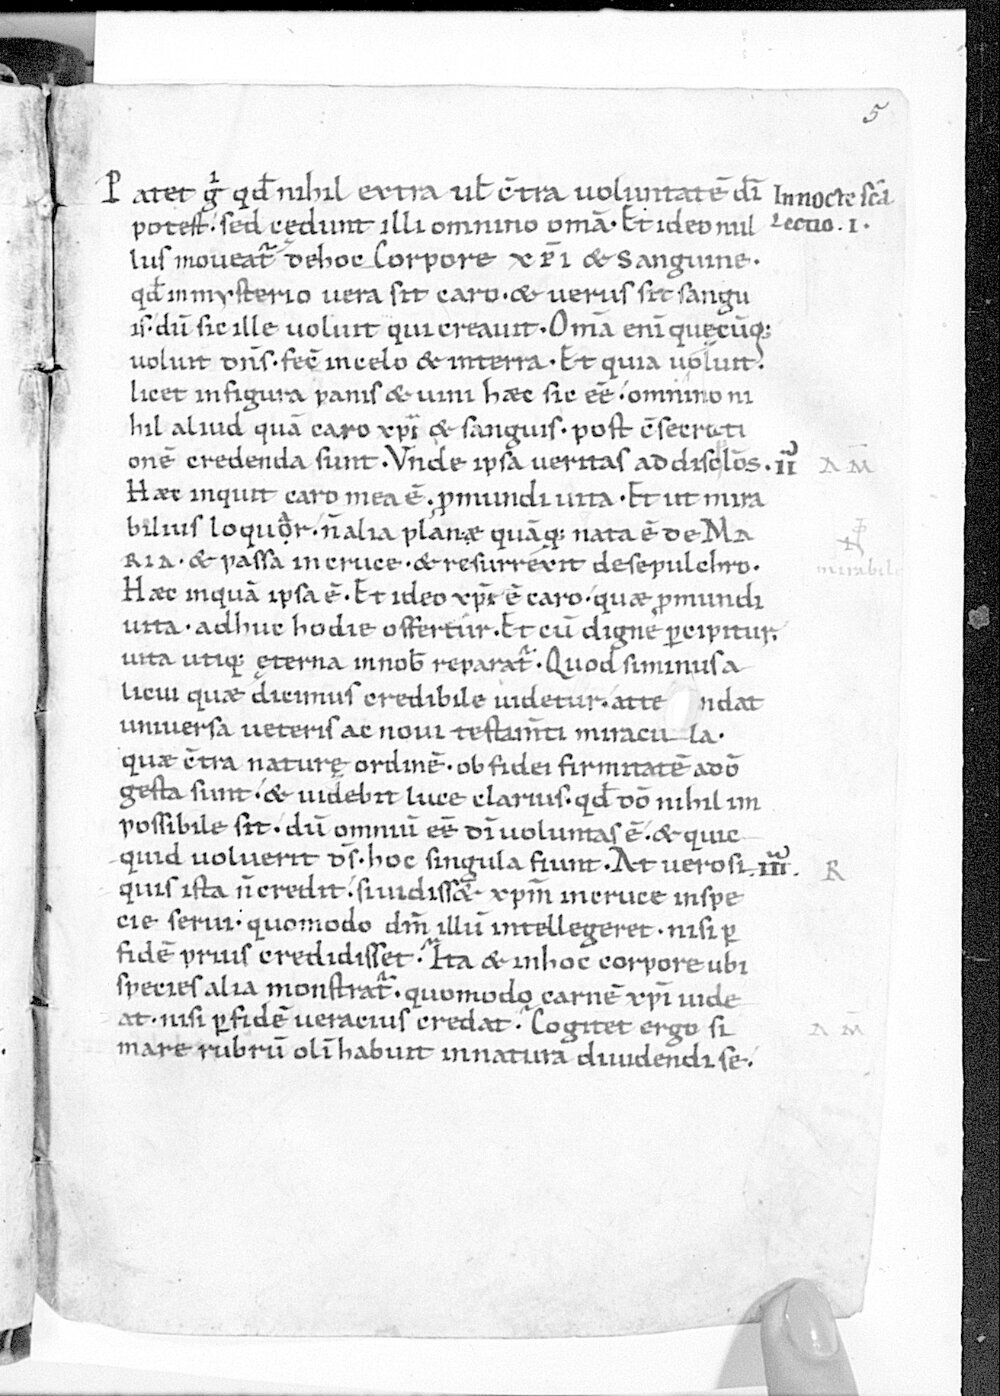 5
Patet gͥ qđ nihil extra uƚ c̄tra uoluntatē dī In nocte scā
potest· sed cędunt illi omnino omā· Et ideo nul Lectio · I ·
lus moueat᷑ de hoc Corpore xp̄i & Sanguine·
qđ in mysterio uera sit caro· & uerus sit sangu
is· dū sic ille uoluit qui creauit· Omā enī quęcūq;
uoluit dn̄s· fec̄ in celo & in terra· Et quia uoluit·
licet in figura panis & uini hæc sic eē· omnino ni
hil aliud quā caro xp̄i & sanguis· post c̄secrati
onē credenda sunt· Vnde ipsa ueritas ad disclōs· II A M̄
Hæc inquit caro mea ē· ꝓ mundi uita· Et ut mira
bilius loquar· n̄ alia planæ quāq; nata ē de MA
RIA· & passa in cruce· & resurrexit de sepulchro· mirabile
Hæc inquā ipsa ē· Et ideo xp̄i ē caro· quæ ꝓ mundi
uita· adhuc hodie offertur· Et cū digne ꝑcipitur,
uita utiq; ęterna in nob̄ reparat᷑· Quod si minus a
licui quæ dicimus credibile uidetur· atte ndat
uniuersa ueteris ac noui testam̄ti miracu la·
quæ c̄tra naturę ordinē· ob fidei firmitatē a dō
gesta sunt· & uidebit luce clarius· qđ dō nihil im
possibile sit· dū omniū eē dī uoluntas ē· & quic
quid uoluerit ds̄· hoc singula fiunt· At uero si III· R
quis ista n̄ credit· si uidiss& xp̄m in cruce in spe
cie serui· quomodo dm̄ illū intellegeret· nisi ꝑ
fidē prius credidisset· Ita & in hoc corpore ubi
species alia monstrat᷑· quomodo carnē xp̄i uide
at· nisi ꝑ fidē ueracius credat· Cogitet ergo si A M̄
mare rubrū olī habuit in natura diuidendi se·